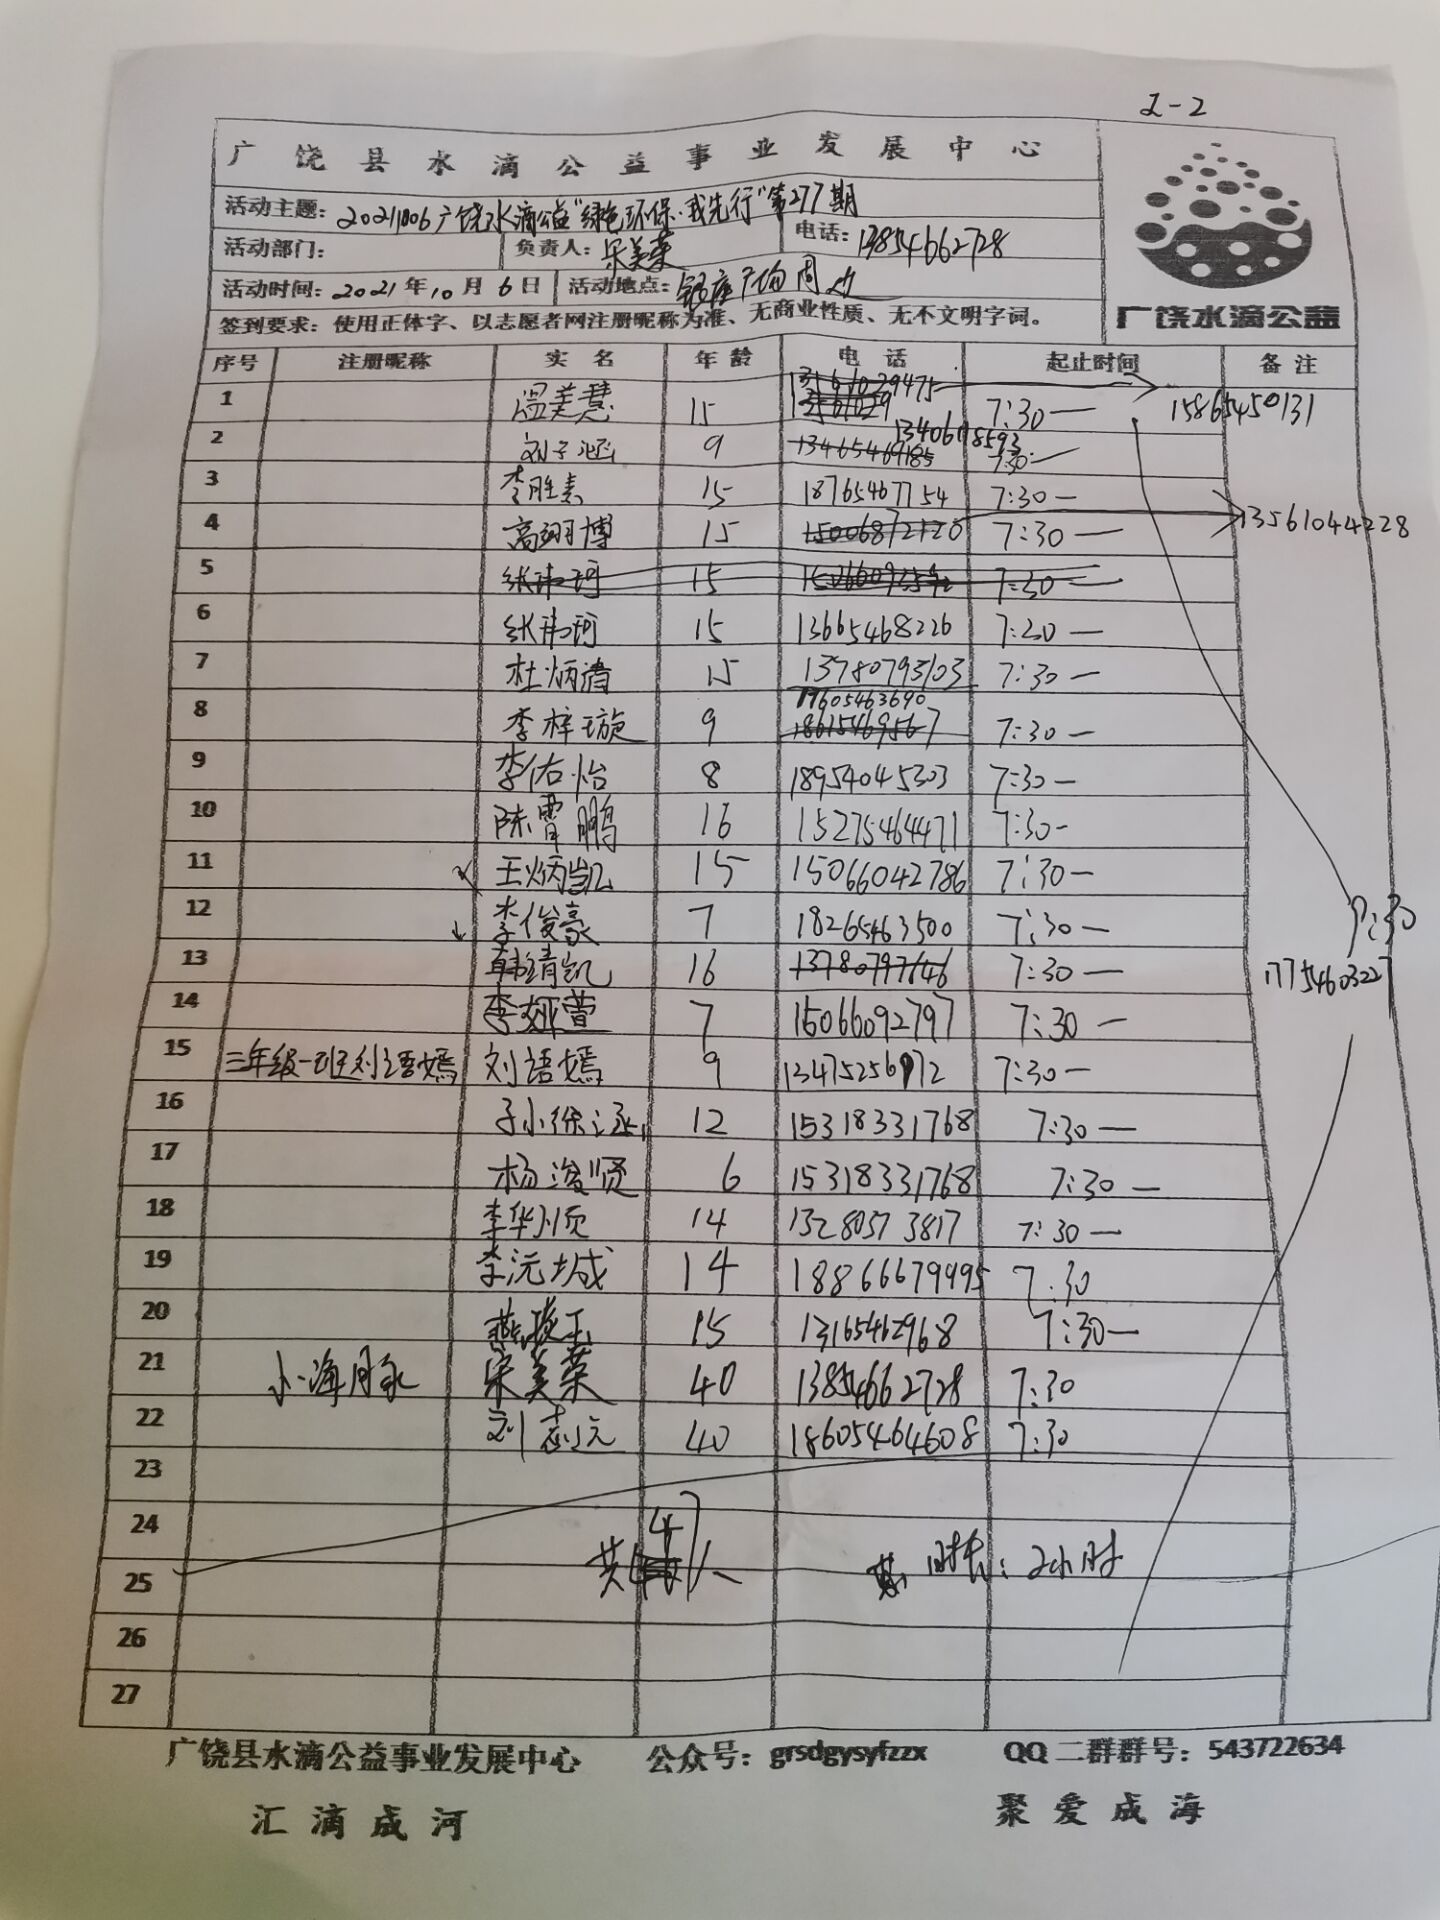 2-2
广饶县水滴公益事业发展中心
活动主题: 20211006广饶水滴公益"绿色环保·我先行"第277期
活动部门: 负责人: 宋美荣 电话: 13854662728
活动时间: 2021年10月6日 活动地点: 银座广场周边
签到要求: 使用正体字、以志愿者网注册昵称为准、无商业性质、无不文明字词。
广饶水滴公益
序号 注册昵称 实名 年龄 电话 起止时间 备注
1 温美慧 15 13561029475 7:30— 15865450131
2 刘子涵 9 13465469185 13406118593 7:30—
3 李胜美 15 18765467754 7:30—
4 高翊博 15 15006872720 7:30— 13561044228
5 张祎珂 15 7:30—
6 张祎珂 15 13665468226 7:30—
7 杜炳清 15 13780793703 7:30—
8 李梓璇 9 17605463690 18615469567 7:30—
9 李佑怡 8 18954045303 7:30—
10 陈霄鹏 16 15275464471 7:30-
11 王炳凯 15 15066042786 7:30—
12 李俊豪 7 18265463500 7:30— 9:30
13 韩靖凯 16 13780797646 7:30— 17754603227
14 李娅萱 7 15066092797 7:30—
15 三年级一班刘语嫣 刘语嫣 9 13475256972 7:30—
16 12 15318331768 7:30—
17 杨浚贤 6 15318331768 7:30—
18 李华顺 14 13280573817 7:30—
19 李沅城 14 18866679995 7:30
20 燕 15 13165462968 7:30—
21 小海 宋美荣 40 13854662728 7:30
22 刘 40 18605464608 7:30
23
24
共47人 时长: 2小时
25
26
27
广饶县水滴公益事业发展中心 公众号: grsdgysyfzzx QQ二群群号: 543722634
汇滴成河 聚爱成海